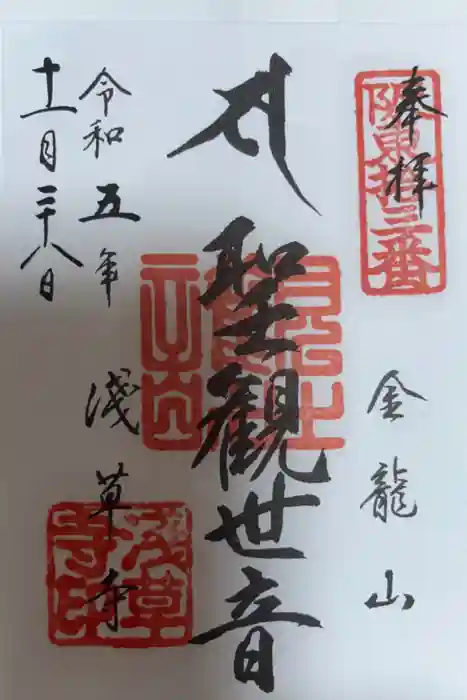 奉拝
阪東拾三番
金龍山
聖観世音
令和五年
十一月二十八日
淺草寺
淺草寺印